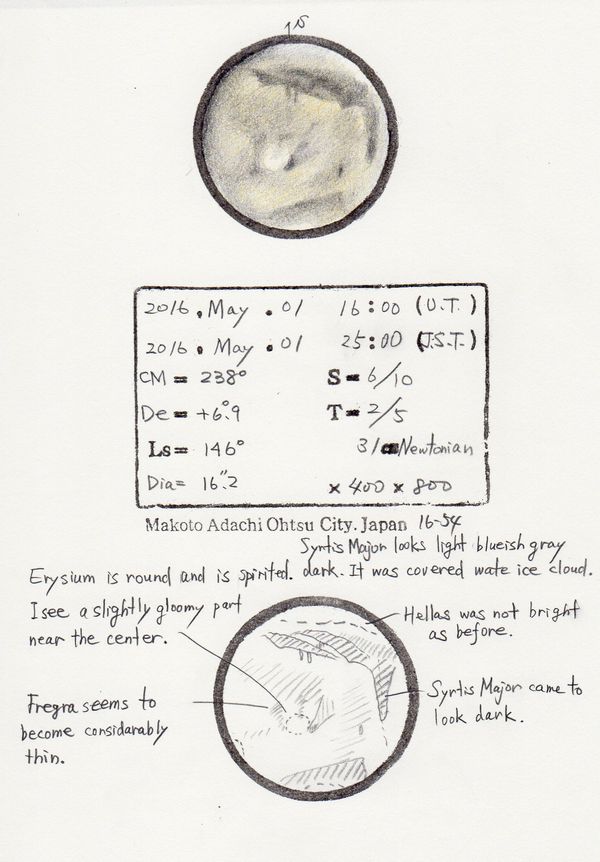 S
2016. May. 01 16:00 (U.T.)
2016. May. 01 25:00 (J.S.T.)
CM = 238° S = 6/10
De = +6°.9 T = 2/5
Ls = 146° 31cm Newtonian
Dia = 16".2 × 400 × 800
Makoto Adachi Ohtsu City. Japan 16-54
Syrtis Major looks light blueish gray
dark. It was covered wate ice cloud.
Erysium is round and is spirited.
I see a slightly gloomy part
near the center.
Hellas was not bright
as before.
Fregra seems to
become considarably
thin.
Syrtis Major came to
look dark.